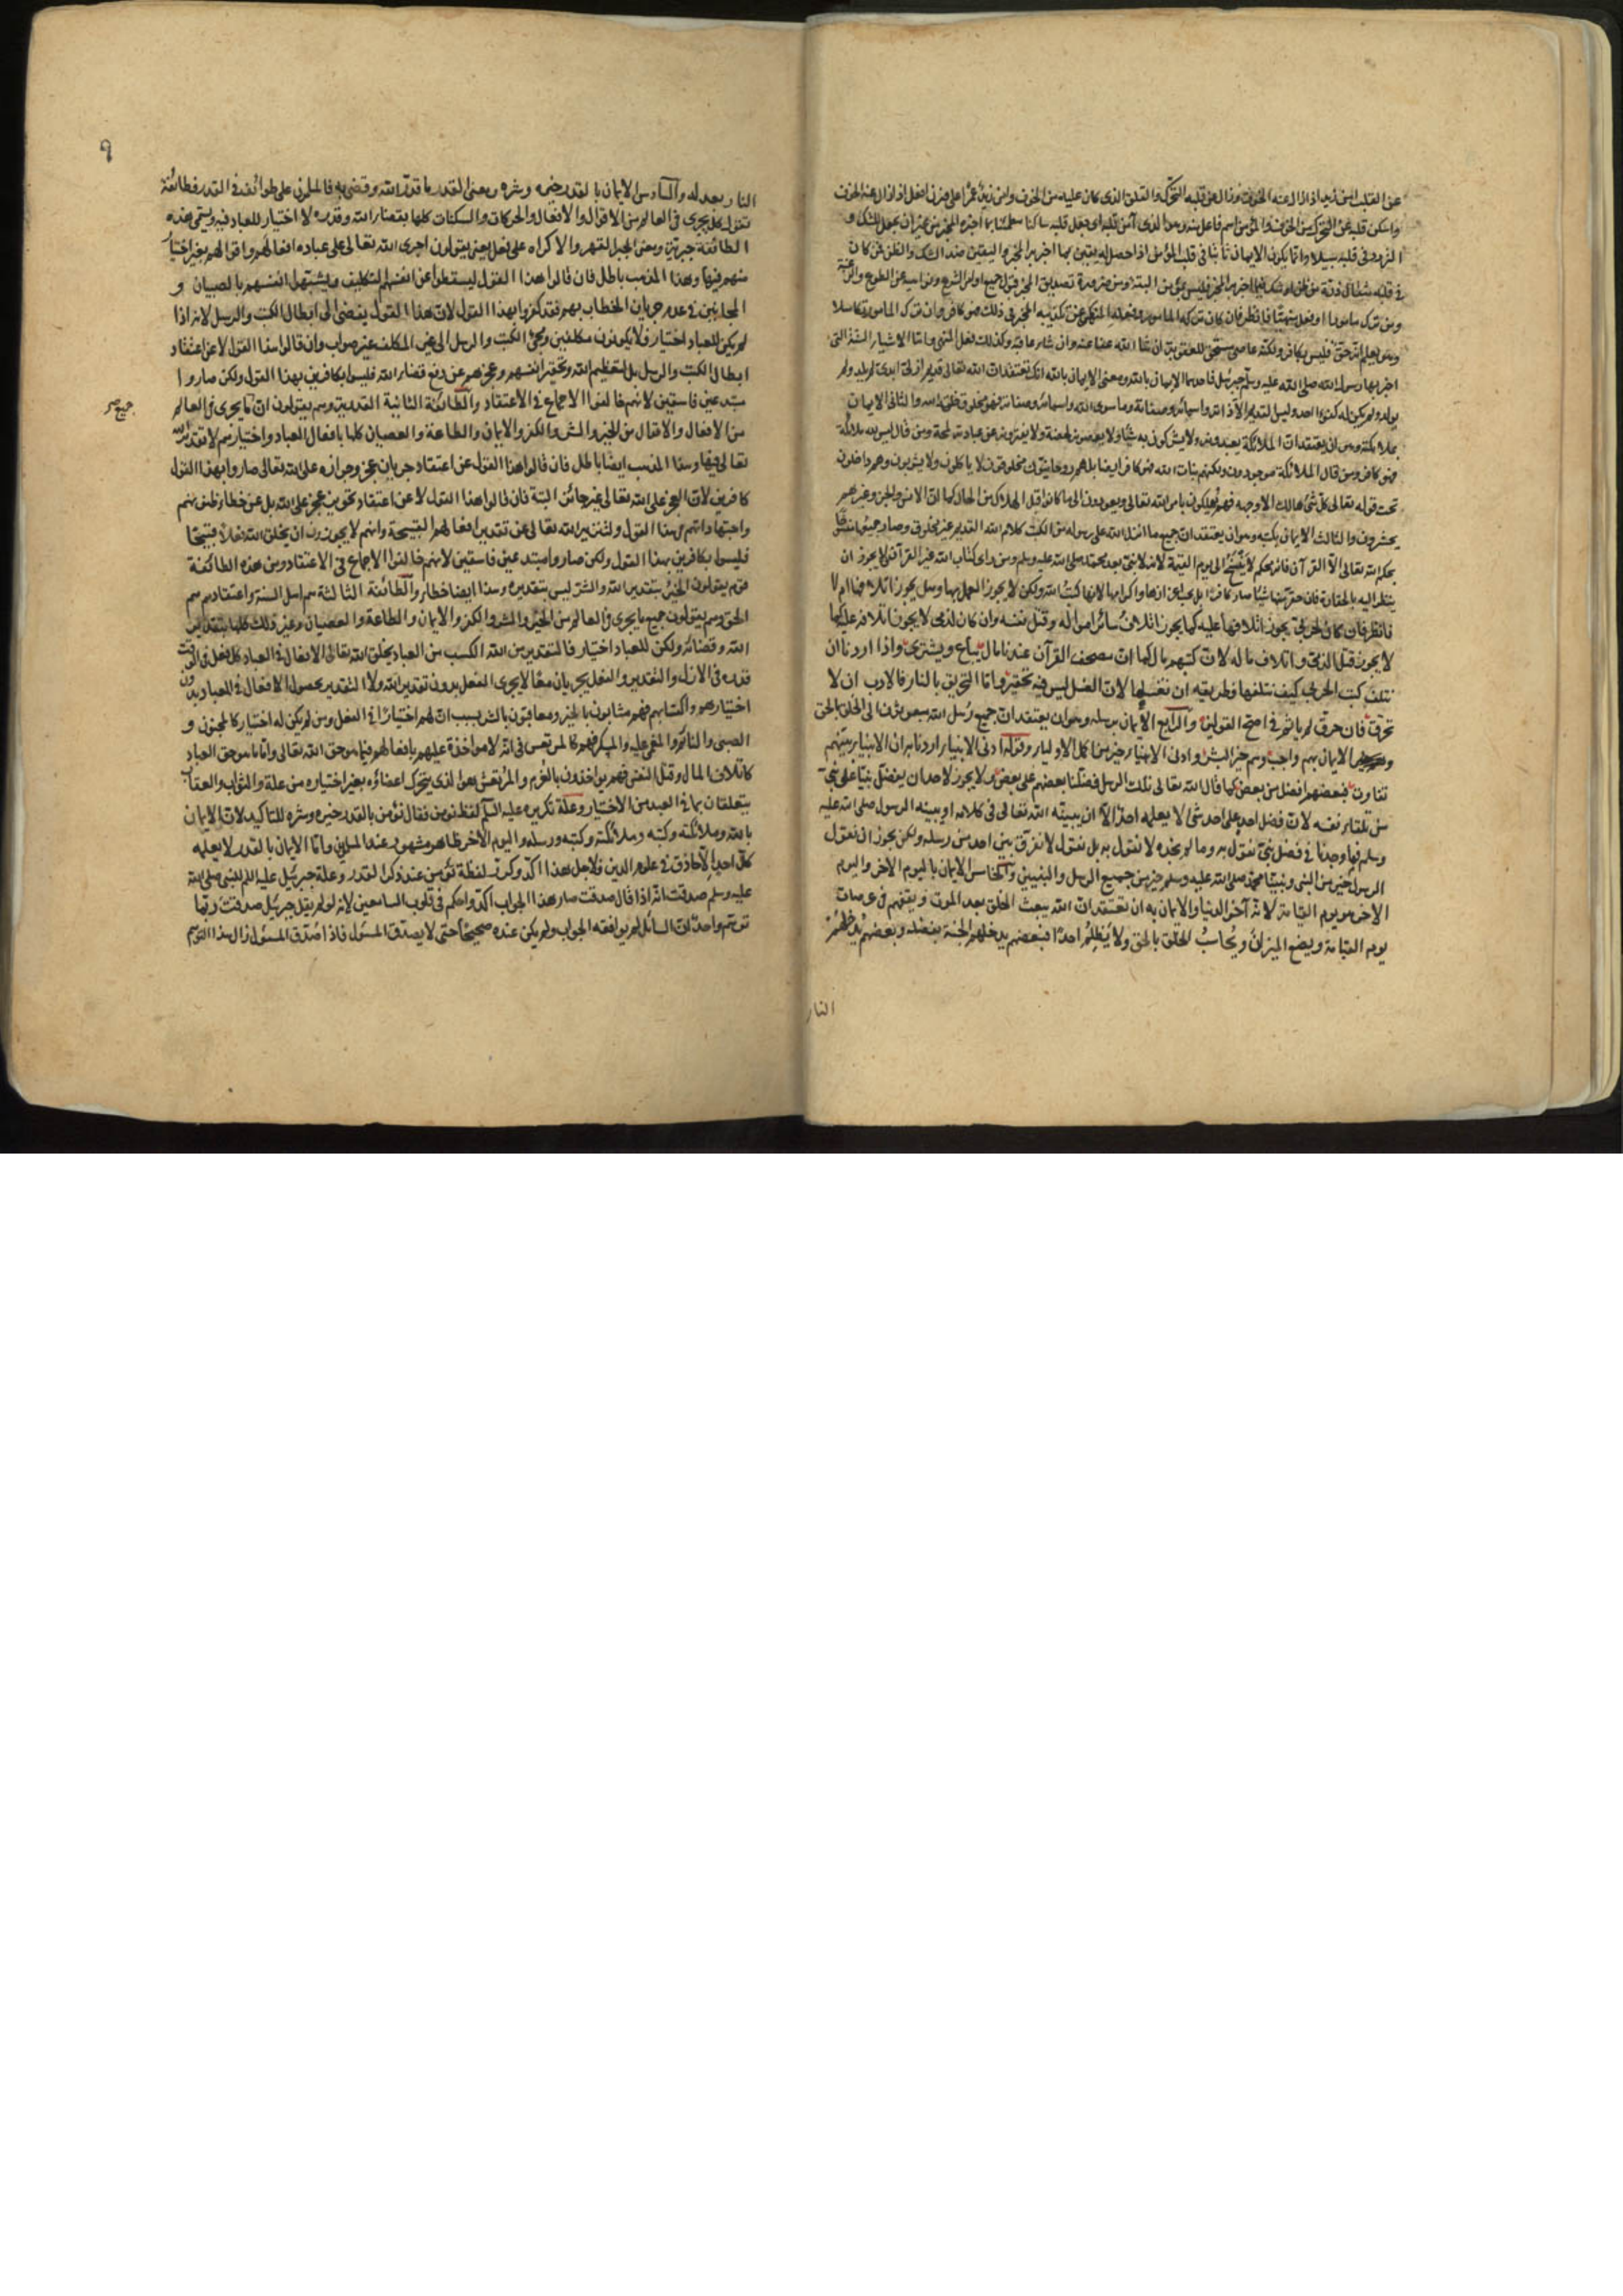 عن القلب امن زيد اذا زال عنه الخوف وزال عن قلبه التحرك والقلق الذى كان عليه من الخوف وامن زيد عمرا على وزن افعل اذا زال عنه الخوف
واسكن قلبه عن التحرك من الخوف والمؤمن اسم فاعل منه وهو الذى آمن قلبه اى جعل قلبه ساكنا مطمئنا بما اخبره المخبر من غير ان يجعل للشك و
التردد فى قلبه سبيلا وانما يكون الايمان ثابتا فى قلب المؤمن اذا حصل له يقين بما اخبر به المخبر واليقين ضد الشك والظن فمن كان
فى قلبه مثقال ذرة من ظن او شك فيما اخبر به المخبر فليس بمؤمن البتة ومن ضرورة تصديق المخبر قبول جميع اوامر الشرع ونواهيه عن الطوع والرغبة
ومن ترك مامورا او فعل منهيا فانظر فان كان تركه المامور وفعله المنهى عن تكذيبه المخبر فى ذلك فهو كافر وان ترك المامور تكاسلا
وهو يعلم انه حق فليس بكافر ولكنه عاص مستحق للعقوبة ان شاء الله عفا عنه وان شاء عاقبه وكذلك فعل المنهى واما الاشياء الستة التى
اخبر بها رسول الله صلى الله عليه وسلم جبرئيل فاحدها الايمان بالله ومعنى الايمان بالله انك تعتقد ان الله تعالى قديم ازلى ابدى لم يلد ولم
يولد ولم يكن له كفوا احد وليس لقديم الا ذاته واسمائه وصفاته وما سوى الله واسمائه وصفاته فهو مخلوق خلقه الله والثانى الايمان
بملائكته وهو ان يعتقد ان الملائكة يعبدونه ولا يشركون به شيئا ولا يعصونه لحظة ولا يفترون عن عبادته لمحة ومن قال ليس لله ملائكة
فهو كافر ومن قال الملائكة موجودون ولكنهم بنات الله فهو كافر ايضا بل هم روحانيون مخلوقون لا ياكلون ولا يشربون وهم داخلون
تحت قوله تعالى كل شئ هالك الا وجهه فهم يهلكون بامر الله تعالى ويعودون الى ما كانوا قبل الهلاك من الحال كما ان الانس والجن وغيرهم
يحشرون والثالث الايمان بكتبه وهو ان يعتقد ان جميع ما انزل الله على رسوله من الكتب كلام الله القديم غير مخلوق وصار جميعها منسوخا
بحكم الله تعالى الا القرآن فانه بحكم لا ينسخ الى يوم القيمة لانه لا نبى بعد محمد صلى الله عليه وسلم ومن راى كتاب الله غير القرآن لا يجوز ان
ينظر اليه بالحقارة فان حقر منها شيئا صار كافرا بل يجب اعزازها واكرامها لانها كتب الله ولكن لا يجوز العمل بها وهل يجوز اتلافها ام لا
فانظر فان كان لحربى يجوز اتلافها عليه كما يجوز اتلاف سائر امواله وقتل نفسه وان كان لذمى لا يجوز اتلافه عليه كما
لا يجوز قتل الذمى واتلاف ماله لان كتبهم مال كما ان مصحف القرآن عندنا مال يباع ويشترى واذا اردنا ان
نتلف كتب الحربى كيف نتلفها فطريقه ان نغسلها لان الغسل ليس فيه تحقير واما التحريق بالنار فالادب ان لا
تحرق فان حرق لم ياثم فى اصح القولين والرابع الايمان برسله وهو ان يعتقد ان جميع رسل الله مبعوثون الى الخلق بالحق
الايمان بهم واجب وهم خير البشر وادنى الانبياء خير من اكمل الاولياء وقوله ادنى الانبياء اردنا به ان الانبياء بينهم
تفاوت فبعضهم افضل من بعض كما قال الله تعالى تلك الرسل فضلنا بعضهم على بعض ولا يجوز لاحد ان يفضل نبيا على نبى
من تلقاء نفسه لان فضل احد على احد شئ لا يعلمه احد الا ان يبينه الله تعالى فى كلامه او يبينه الرسول صلى الله عليه
وسلم فما وجدنا فى فضل نبى نقول به وما لم نجده لا نقول به بل نقول لا نفرق بين احد من رسله ولكن يجوز ان نقول
الرسول خير من النبى ونبينا محمد صلى الله عليه وسلم خير من جميع الرسل والنبيين والخامس الايمان باليوم الآخر واليوم
الآخر هو يوم القيامة لانه آخر الدنيا والايمان به ان تعتقد ان الله يبعث الخلق بعد الموت ويقفهم فى عرصات
يوم القيامة ويضع الميزان ويحاسب الخلق بالحق ولا يظلم احدا فبعضهم يدخلهم الجنة بفضله وبعضهم يدخلهم
النار
٩
النار بعدله والسادس الايمان بالقدر خيره وشره ومعنى القدر ما قدر الله وقضى به فالملون على طوائف فى القدر فطائفة
تقول كل يجرى فى العالم من الاقوال والافعال والحركات والسكنات كلها بقضاء الله وقدره لا اختيار للعباد فيه ويسمى هذه
الطائفة جبرية ومعنى الجبر القهر والاكراه على فعل يعنى يقولون اجرى الله تعالى على عباده افعالهم واقوالهم بغير اختيار
منهم فيها وهذا المذهب باطل فان قالوا هذا القول ليسقطوا عن انفسهم التكليف ويشبهوا انفسهم بالصبيان و
المجانين فى عدم جريان الخطاب بهم فقد كفروا بهذا القول لان هذا القول يفضى الى ابطال الكتب والرسل لانه اذا
لم يكن للعباد اختيار فلا يكونون مكلفين ومجئ الكتب والرسل الى غير المكلف غير صواب وان قالوا هذا القول لا عن اعتقاد
ابطال الكتب والرسل بل لتعظيم الله وتحقير انفسهم وعجزهم عن دفع قضاء الله فليسوا بكافرين بهذا القول ولكن صاروا
مبتدعين فاسقين لانهم خالفوا الاجماع فى الاعتقاد والطائفة الثانية القدرية وهم يقولون ان ما يجرى فى العالم
من الافعال والاقوال من الخير والشر والكفر والايمان والطاعة والعصيان كلها بافعال العباد واختيارهم لا بتقدير الله
تعالى فيها وهذا المذهب ايضا باطل فان قالوا هذا القول عن اعتقاد جريان عجز وجوازه على الله تعالى صاروا بهذا القول
كافرين لان العجز على الله تعالى غير جائز البتة فان قالوا هذا القول لا عن اعتقاد تجويز عجز على الله بل عن خطاء ظنهم
واجتهاداتهم هذا القول ولتنزيه الله تعالى عن تقدير افعالهم القبيحة وانهم لا يجوزون ان يخلق الله فعلا قبيحا
فليسوا بكافرين بهذا القول ولكن صاروا مبتدعين فاسقين لانهم خالفوا الاجماع فى الاعتقاد ومن هذه الطائفة
قوم يقولون الخير بتقدير الله والشر ليس بتقديره وهذا ايضا خطاء والطائفة الثالثة هم اهل السنة واعتقادهم هم
الحق وهم يقولون جميع ما يجرى فى العالم من الخير والشر والكفر والايمان والطاعة والعصيان وغير ذلك كلها بتقدير
الله وقضائه ولكن للعباد اختيار فالتقدير من الله الكسب من العباد يخلق الله تعالى الافعال فى العباد كل فعل فى الوقت
قدره فى الازل والتقدير والفعل يجريان معا لا يجرى الفعل بدون تقدير الله ولا التقدير بحصول الافعال فى العباد بدون
اختيارهم واكتسابهم فهم مثابون بالخير ومعاقبون بالشر بسبب ان لهم اختيارا فى الفعل ومن لم يكن له اختيار كالمجنون و
الصبى والنائم والمغمى عليه والمكره فهو كالمرتعش فى انه لا مؤاخذة عليهم بافعالهم فيما هو حق الله تعالى واما ما هو حق العباد
كاتلاف المال وقتل النفس فهم يؤاخذون بالغرم والمرتعش هو الذى يتحرك اعضاؤه بغير اختياره من علة والثواب والعقاب
يتعلقان بما فى العبد من الاختيار وعلة تكريره عليه السلم لفظ نؤمن فقال نؤمن بالقدر خيره وشره للتاكيد لان الايمان
بالله وملائكته وكتبه ورسله واليوم الآخر ظاهر مشهور عند المسلمين واما الايمان بالقدر لا يعلمه
كل احد الا حاذق فى علوم الدين فلاجل هذا اكد وكرر لفظة تؤمن عند ذكر القدر وعلة جبرئيل عليه السلم للنبى صلى الله
عليه وسلم صدقت انه اذا قال صدقت صار هذا الجواب اكد واحكم فى قلوب السامعين لانه لو لم يقل جبرئيل صدقت ربما
توهم واحد ان السائل لم يوافقه الجواب ولم يكن عنده صحيحا حتى لا يصدق المسئول فاذا صدق المسئول زال هذا التوهم